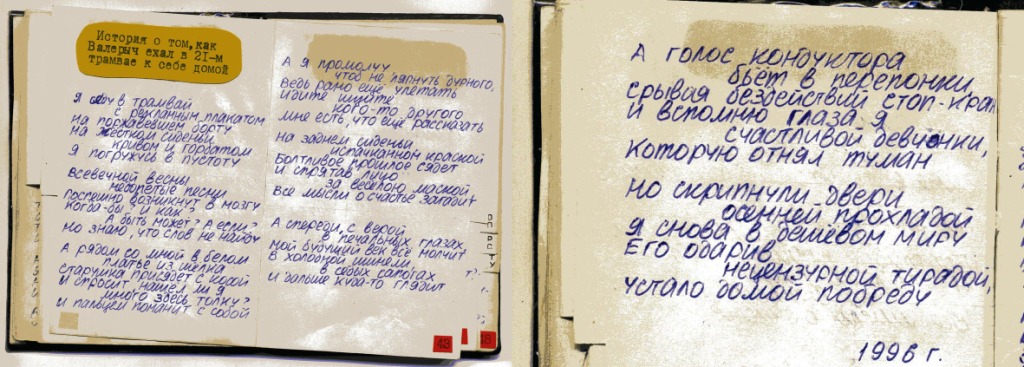 История о том, как
Валерыч ехал в 21-м
трамвае к себе домой
Я сяду в трамвай
с рекламным плакатом
На поржавевшем борту
На жестком сиденьи
кривом и горбатом
Я погружусь в пустоту
Всевечной весны
неспетые песни
Поспешно возникнут в мозгу
Когда-бы и как-?
А быть может? А если?
Но знаю, что слов не найду
А рядом со мной в белом
платье из шелка
старушка присядет с косой
И спросит нашел ли я
много здесь толку?
И пальцем поманит с собой
А я промолчу
чтоб не ляпнуть дурного,
Ведь рано ещё улетать
Идите ищите
кого-то другого
Мне есть, что ещё рассказать
На заднем сиденьи
испачканном краской
Болтливое прошлое сядет
И спрятав лицо
за веселою маской
Все мысли о счастье загадит
А спереди, с верой
в печальных глазах,
Мой будущий век все молчит
В холодной шинели
в серых сапогах
И дальше куда-то глядит
43
18
А голос кондуктора
бьет в перепонки,
Срывая бездействий стоп-кран
И вспомню глаза я
счастливой девчонки,
Которую отнял туман
Но скрипнули двери
осенней прохладой
Я снова в дешевом миру
Его одарив
нецензурной тирадой,
Устало домой побреду
1996 г.